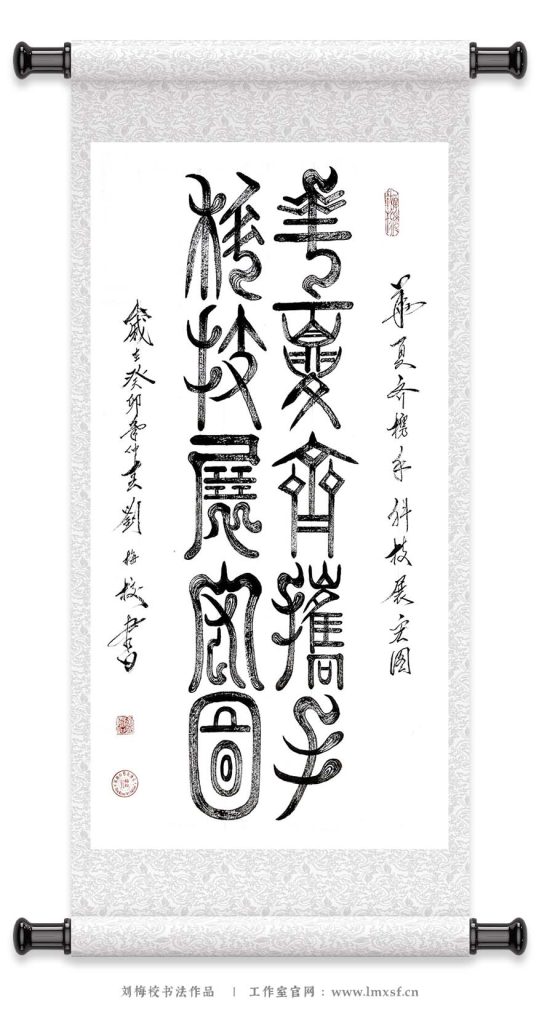 华夏齐携手科技展宏图
華夏齊攜手
科技展宏圖
歲在癸卯年仲春劉梅校書
刘梅校书法作品 | 工作室官网：www.lmxsf.cn